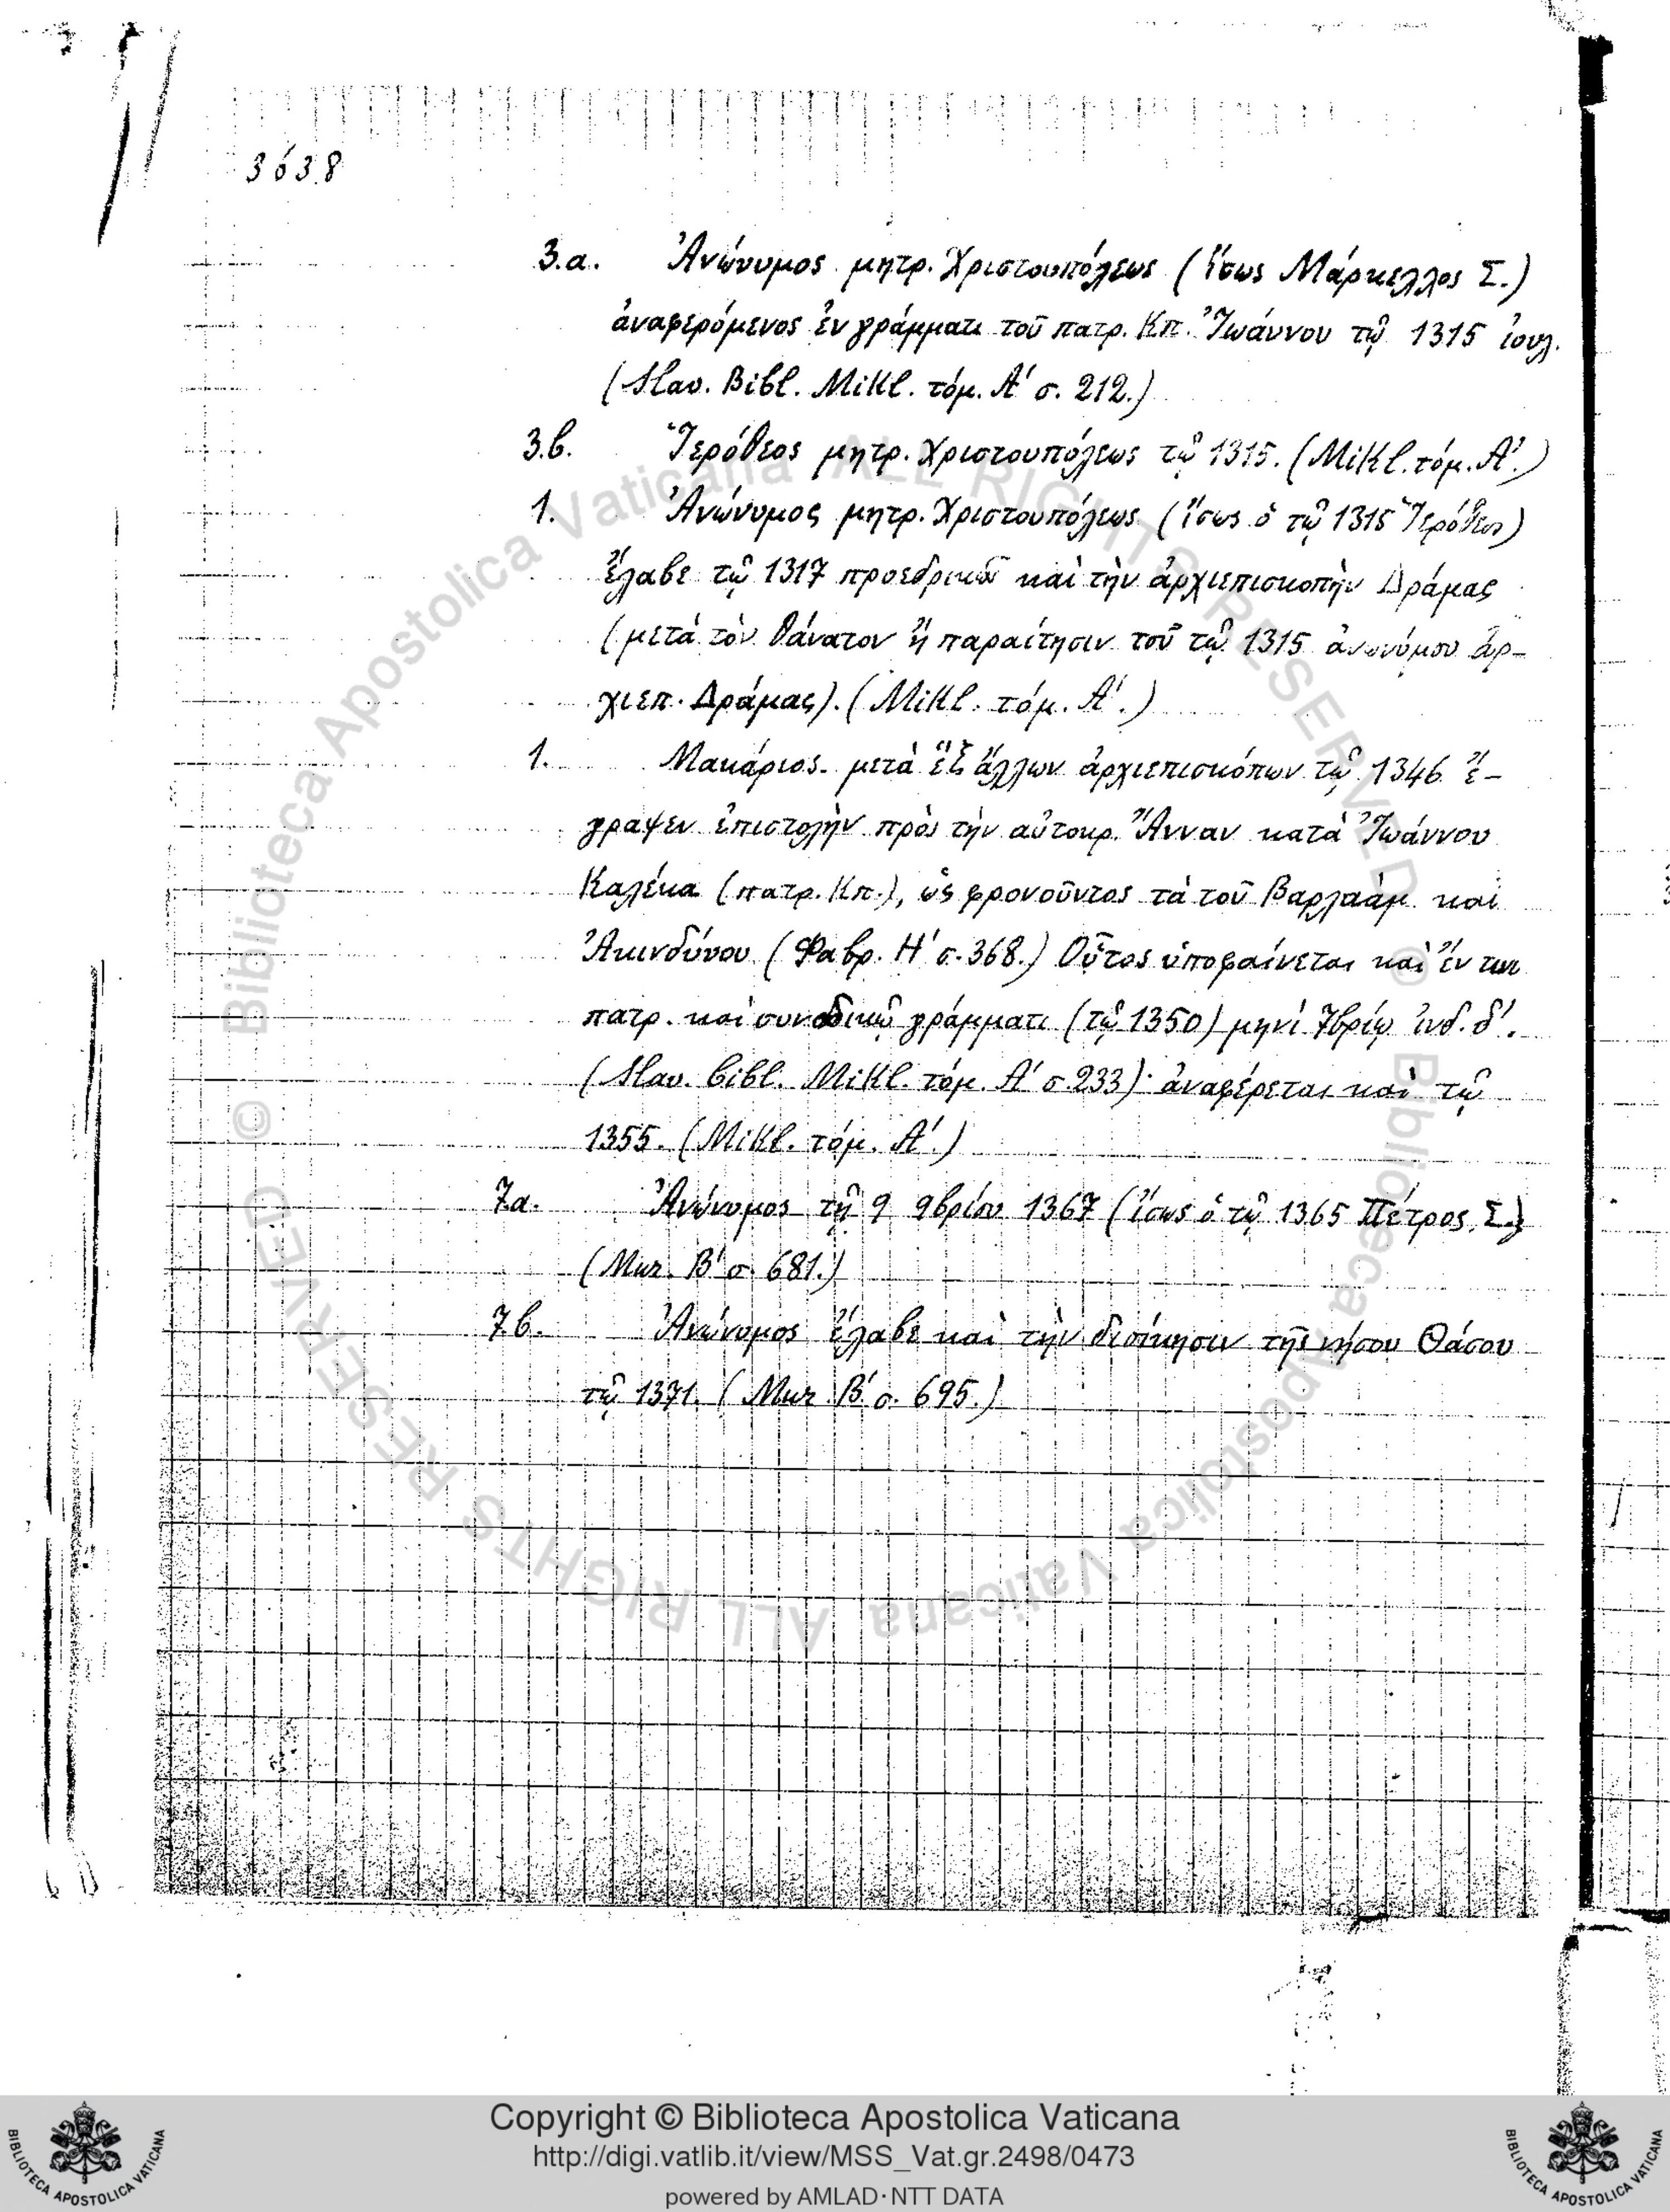 3638
3.a. Ἀνώνυμος μητρ. Χριστουπόλεως (ἴσως Μάρκελλος Σ.)
ἀναφερόμενος ἐν γράμματι τοῦ πατρ. Κπ. Ἰωάννου τῷ 1315 ἰουλ.
(Slav. Bibl. Mikl. τόμ. Α' σ. 212.)
3.b. Ἱερόθεος μητρ. Χριστουπόλεως τῷ 1315. (Mikl. τόμ. Α'.)
1. Ἀνώνυμος μητρ. Χριστουπόλεως (ἴσως ὁ τῷ 1315 Ἱερόθεος)
ἔλαβε τῷ 1317 προεδρικῶς καὶ τὴν ἀρχιεπισκοπὴν Δράμας
(μετὰ τὸν θάνατον ἢ παραίτησιν τοῦ τῷ 1315 ἀνωνύμου ἀρ-
χιεπ. Δράμας). (Mikl. τόμ. Α'.)
1. Μακάριος. μετὰ ἓξ ἄλλων ἀρχιεπισκόπων τῷ 1346 ἔ-
γραψεν ἐπιστολὴν πρὸς τὴν αὐτοκρ. Ἄνναν κατὰ Ἰωάννου
Καλέκα (πατρ. Κπ.), ὡς φρονοῦντος τὰ τοῦ Βαρλαὰμ καὶ
Ἀκινδύνου (Φαβρ. Η' σ. 368.) Οὗτος ὑποφαίνεται καὶ ἔν τινι
πατρ. καὶ συνοδικῷ γράμματι (τῷ 1350) μηνὶ 7βρίῳ ἰνδ. δ'.
(Slav. bibl. Mikl. τόμ. Α' σ. 233)· ἀναφέρεται καὶ τῷ
1355. (Mikl. τόμ. Α'.)
7a. Ἀνώνυμος τῇ 9 9βρίου 1367 (ἴσως ὁ τῷ 1365 Πέτρος. Σ.)
(Μυζ. Β' σ. 681.)
7b. Ἀνώνυμος ἔλαβε καὶ τὴν διοίκησιν τῆς νήσου Θάσου
τῷ 1371. (Μυζ. Β' σ. 695.)
© Biblioteca Apostolica Vaticana ALL RIGHTS RESERVED
© Biblioteca Apostolica Vaticana ALL RIGHTS RESERVED
Copyright © Biblioteca Apostolica Vaticana
http://digi.vatlib.it/view/MSS_Vat.gr.2498/0473
powered by AMLAD·NTT DATA
BIBLIOTECA APOSTOLICA VATICANA
BIBLIOTECA APOSTOLICA VATICANA